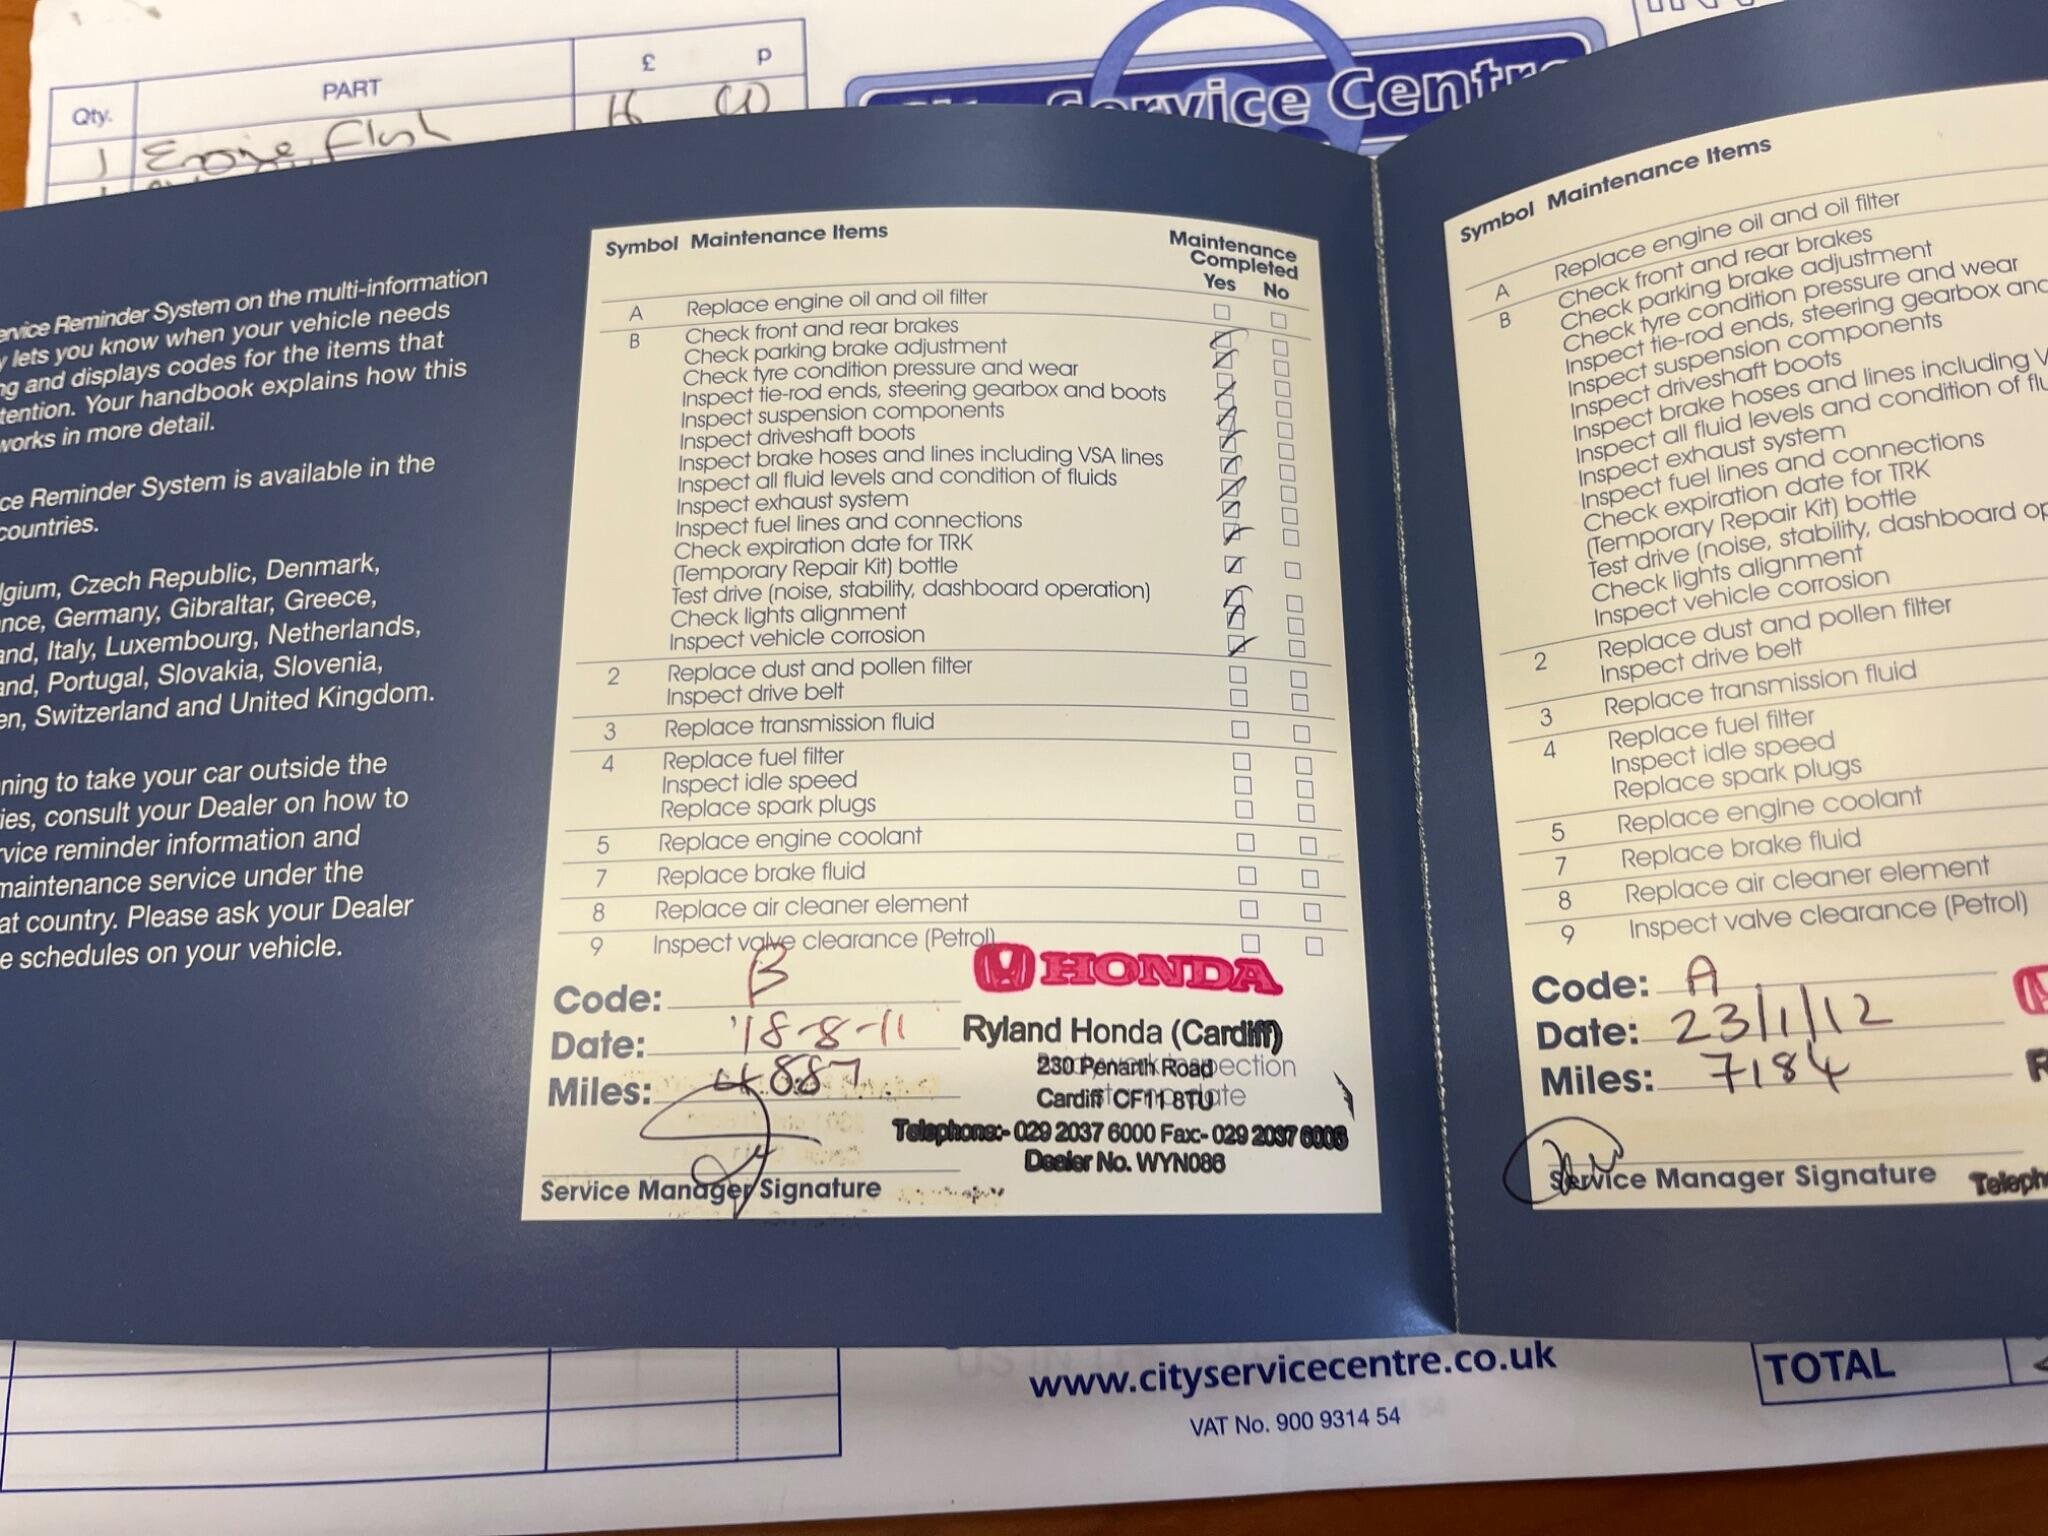 Qty.
PART
£ p
1 Engine Flush
Service Centre
Service Reminder System on the multi-information
lets you know when your vehicle needs
and displays codes for the items that
Your handbook explains how this
works in more detail.
Reminder System is available in the
countries.
Czech Republic, Denmark,
Germany, Gibraltar, Greece,
Italy, Luxembourg, Netherlands,
Portugal, Slovakia, Slovenia,
Switzerland and United Kingdom.
to take your car outside the
consult your Dealer on how to
reminder information and
maintenance service under the
at country. Please ask your Dealer
schedules on your vehicle.
Symbol Maintenance Items
Maintenance
Completed
Yes No
A Replace engine oil and oil filter
B Check front and rear brakes
Check parking brake adjustment
Check tyre condition pressure and wear
Inspect tie-rod ends, steering gearbox and boots
Inspect suspension components
Inspect driveshaft boots
Inspect brake hoses and lines including VSA lines
Inspect all fluid levels and condition of fluids
Inspect exhaust system
Inspect fuel lines and connections
Check expiration date for TRK
(Temporary Repair Kit) bottle
Test drive (noise, stability, dashboard operation)
Check lights alignment
Inspect vehicle corrosion
2 Replace dust and pollen filter
Inspect drive belt
3 Replace transmission fluid
4 Replace fuel filter
Inspect idle speed
Replace spark plugs
5 Replace engine coolant
7 Replace brake fluid
8 Replace air cleaner element
9 Inspect valve clearance (Petrol)
Code: B
Date: 18-8-11
Miles: 4887
Service Manager Signature
HONDA
Ryland Honda (Cardiff)
230 Penarth Road
Cardiff CF11 8TU
Telephone:- 029 2037 6000 Fax:- 029 2037 6006
Dealer No. WYN086
Symbol Maintenance Items
A Replace engine oil and oil filter
B Check front and rear brakes
Check parking brake adjustment
Check tyre condition pressure and wear
Inspect tie-rod ends, steering gearbox and
Inspect suspension components
Inspect driveshaft boots
Inspect brake hoses and lines including
Inspect all fluid levels and condition of
Inspect exhaust system
Inspect fuel lines and connections
Check expiration date for TRK
(Temporary Repair Kit) bottle
Test drive (noise, stability, dashboard
Check lights alignment
Inspect vehicle corrosion
2 Replace dust and pollen filter
Inspect drive belt
3 Replace transmission fluid
4 Replace fuel filter
Inspect idle speed
Replace spark plugs
5 Replace engine coolant
7 Replace brake fluid
8 Replace air cleaner element
9 Inspect valve clearance (Petrol)
Code: A
Date: 23/1/12
Miles: 7184
Service Manager Signature
www.cityservicecentre.co.uk
VAT No. 900 9314 54
TOTAL